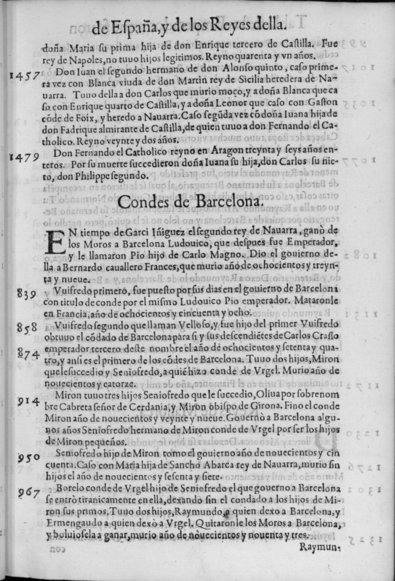 de España, y de los Reyes della.
doña Maria su prima hija de don Enrique tercero de Castilla. Fue
rey de Napoles, no tuuo hijos legitimos. Reyno quarenta y vn años.
1457 Don Iuan el segundo hermano de don Alonso quinto, caso prime-
ra vez con Blanca viuda de don Martin rey de Sicilia heredera de Na-
uarra. Tuuo della a don Carlos que murio moço, y a doña Blanca que ca
so con Enrique quarto de Castilla, y a doña Leonor que caso con Gaston
cõde de Foix, y heredo a Nauarra. Caso segũda vez cõ doña Iuana hija de
don Fadrique almirante de Castilla, de quien tuuo a don Fernando el Ca-
tholico. Reyno veynte y dos años.
1479 Don Fernando el Catholico reyno en Aragon treynta y seys años en-
teros. Por su muerte succedieron doña Iuana su hija, don Carlos su nie-
to, don Philippe segundo.
Condes de Barcelona.
EN tiempo de Garci Iñiguez el segundo rey de Nauarra, ganò de
los Moros a Barcelona Ludouico, que despues fue Emperador,
y le llamaron Pio hijo de Carlo Magno. Dio el gouierno de-
lla a Bernardo cauallero Frances, que murio año de ochocientos y treyn
ta y nueue.
839 Vuifredo primero, fue puesto por sus dias en el gouierno de Barcelona
con titulo de conde por el mismo Ludouico Pio emperador. Mataronle
en Francia, año de ochocientos y cincuenta y ocho.
858 Vuifredo segundo que llaman Velloso, y fue hijo del primer Vuifredo
obtuuo el cõdado de Barcelona para si y sus descendiẽtes de Carlos Crasso
874 emperador tercero deste nombre el año de ochocientos y setenta y qua-
tro, y ansi es el primero de los cõdes de Barcelona. Tuuo dos hijos, Miron
que le succedio y Seniofredo, a quiẽ hizo conde de Vrgel. Murio año de
nouecientos y catorze.
914 Miron tuuo tres hijos Seniofredo que le succedio, Oliua por sobrenom
bre Cabreta señor de Cerdania, y Miron obispo de Girona. Fino el conde
Miron año de nouecientos y veynte y nueue. Gouernò a Barcelona algu-
nos años Seniofredo hermano de Miron conde de Vrgel por ser los hijos
de Miron pequeños.
950 Seniofredo hijo de Miron tomo el gouierno año de nouecientos y cin
cuenta. Caso con Maria hija de Sancho Abarca rey de Nauarra, murio sin
hijos el año de nouecientos y sesenta y siete.
967 Borelo conde de Vrgel hijo de Seniofredo el que gouerno a Barcelona
se entrò tiranicamente en ella, dexando sin el condado a los hijos de Mi-
ron sus primos. Tuuo dos hijos, Raymundo a quien dexo a Barcelona, y
Ermengaudo a quien dexo a Vrgel. Quitaronle los Moros a Barcelona,
y boluiosela a ganar, murio año de nouecientos y nouenta y tres.
Raymun-